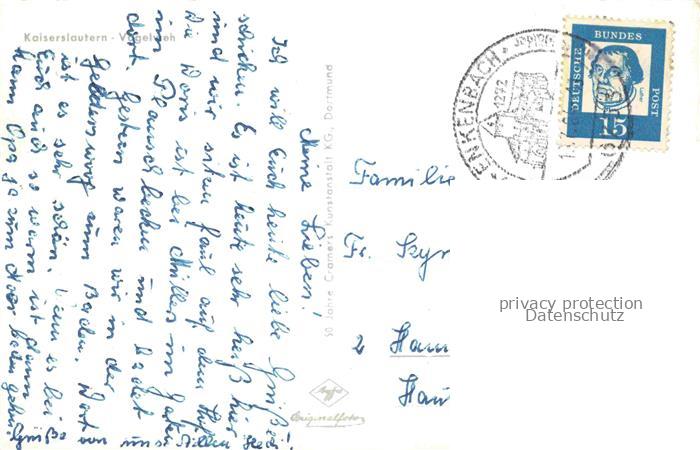 Kaiserslautern - Vogelweh
Meine Lieben!
Ich will Euch heute liebe Grüße
schicken. Es ist heute sehr heiß hier
und wir sitzen faul auf dem
Die Doris ist bei Müllers im Garten
im Planschbecken und badet
dort. Gestern waren wir in der
zum Baden. Dort
ist es sehr schön. Wenn es bei
Euch auch so warm ist dann
kann Opa ja zum baden gehn.
Grüße von uns allen
50 Jahre Cramers Kunstanstalt KG, Dortmund
Agfa
Originalfoto
ENKENBACH
1272
DEUTSCHE
BUNDES
POST
15
Familie
Fr.
2 Ham
Hau
privacy protection
Datenschutz